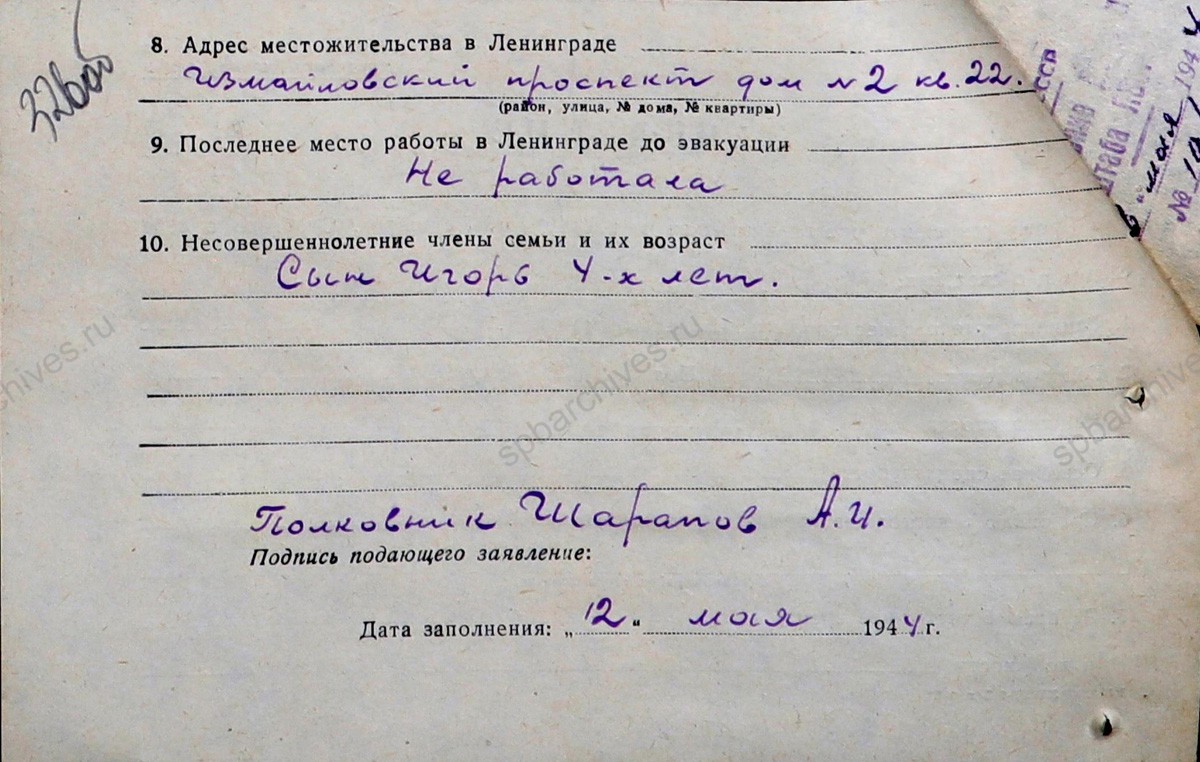 8. Адрес местожительства в Ленинграде
Измайловский проспект дом № 2 кв. 22.
(район, улица, № дома, № квартиры)
9. Последнее место работы в Ленинграде до эвакуации
Не работала
10. Несовершеннолетние члены семьи и их возраст
Сын Игорь 4-х лет.
Полковник Шарапов А.И.
Подпись подающего заявление:
Дата заполнения: „12" мая 1944 г.
spbarchives.ru